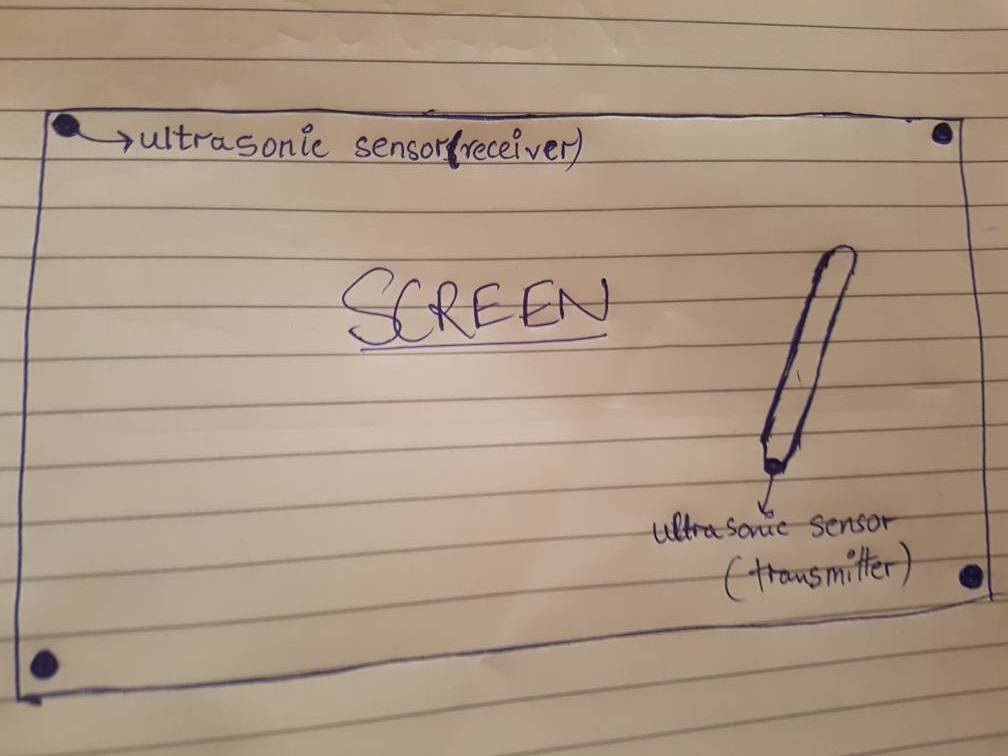 ultrasonic sensor(receiver)
SCREEN
ultrasonic sensor
(transmitter)